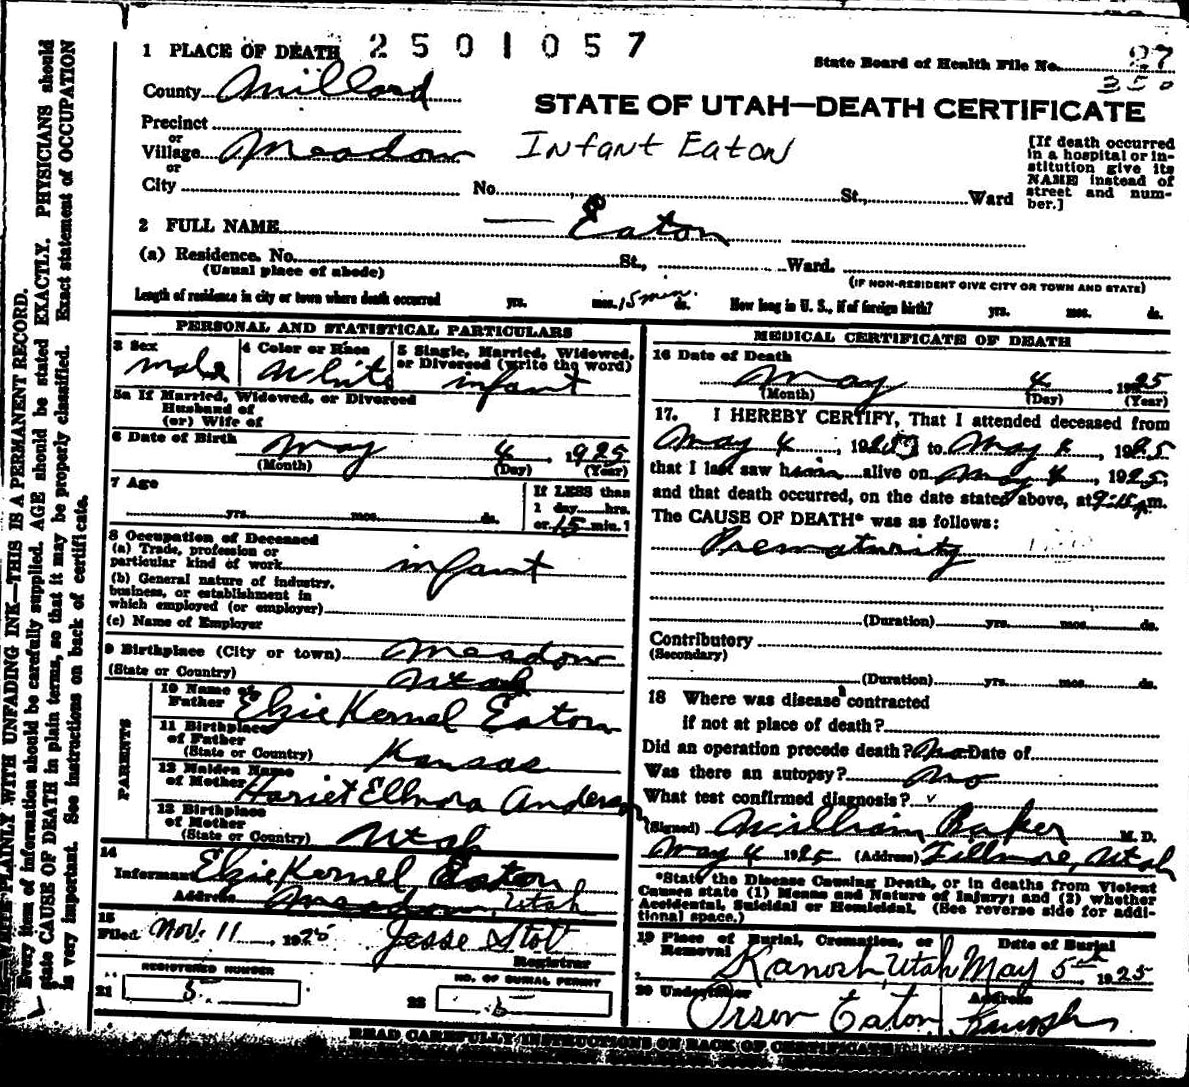 1 PLACE OF DEATH 2501057
State Board of Health File No. 27
350
County Millard
STATE OF UTAH—DEATH CERTIFICATE
Precinct
or
Village Meadow
Infant Eaton
[If death occurred in a hospital or institution give its NAME instead of street and number.]
or
City No. St., Ward
2 FULL NAME — Eaton
(a) Residence. No. St., Ward.
(Usual place of abode)
(IF NON-RESIDENT GIVE CITY OR TOWN AND STATE)
Length of residence in city or town where death occurred yrs. mos. 15 min. ds. How long in U. S., if of foreign birth? yrs. mos. ds.
PERSONAL AND STATISTICAL PARTICULARS
3 Sex
male
4 Color or Race
White
5 Single, Married, Widowed, or Divorced (write the word)
infant
5a If Married, Widowed, or Divorced
Husband of
(or) Wife of
6 Date of Birth
May 4, 1925
(Month) (Day) (Year)
7 Age
yrs. mos. ds.
If LESS than
1 day hrs.
or 15 min.?
8 Occupation of Deceased
(a) Trade, profession or
particular kind of work infant
(b) General nature of industry,
business, or establishment in
which employed (or employer)
(c) Name of Employer
9 Birthplace (City or town) Meadow
(State or Country) Utah
PARENTS
10 Name of
Father Elzie Kernel Eaton
11 Birthplace
of Father
(State or Country) Kansas
12 Maiden Name
of Mother Hariet Ellnora Anderson
13 Birthplace
of Mother
(State or Country) Utah
14
Informant Elzie Kernel Eaton
Address Meadow, Utah
15
Filed Nov. 11 1925 Jesse Stott
Registrar
REGISTERED NUMBER
21 5
NO. OF BURIAL PERMIT
22 5
MEDICAL CERTIFICATE OF DEATH
16 Date of Death
May 4, 1925
(Month) (Day) (Year)
17. I HEREBY CERTIFY, That I attended deceased from
May 4, 1925 to May 4, 1925
that I last saw him alive on May 4, 1925,
and that death occurred, on the date stated above, at 9:15 p.m.
The CAUSE OF DEATH* was as follows:
Prematurity
(Duration) yrs. mos. ds.
Contributory
(Secondary)
(Duration) yrs. mos. ds.
18 Where was disease contracted
if not at place of death?
Did an operation precede death? No Date of
Was there an autopsy? No
What test confirmed diagnosis?
(Signed) William Baker M. D.
May 4 1925 (Address) Fillmore, Utah
*State the Disease Causing Death, or in deaths from Violent
Causes state (1) Means and Nature of Injury; and (2) whether
Accidental, Suicidal or Homicidal. (See reverse side for addi-
tional space.)
19 Place of Burial, Cremation, or Removal Date of Burial
Kanosh, Utah May 5th 1925
20 Undertaker Address
Orson Eaton Kanosh
READ CAREFULLY INSTRUCTIONS ON BACK OF CERTIFICATE
WRITE PLAINLY WITH UNFADING INK—THIS IS A PERMANENT RECORD.
Every item of information should be carefully supplied. AGE should be stated EXACTLY. PHYSICIANS should
state CAUSE OF DEATH in plain terms, so that it may be properly classified. Exact statement of OCCUPATION
is very important. See instructions on back of certificate.